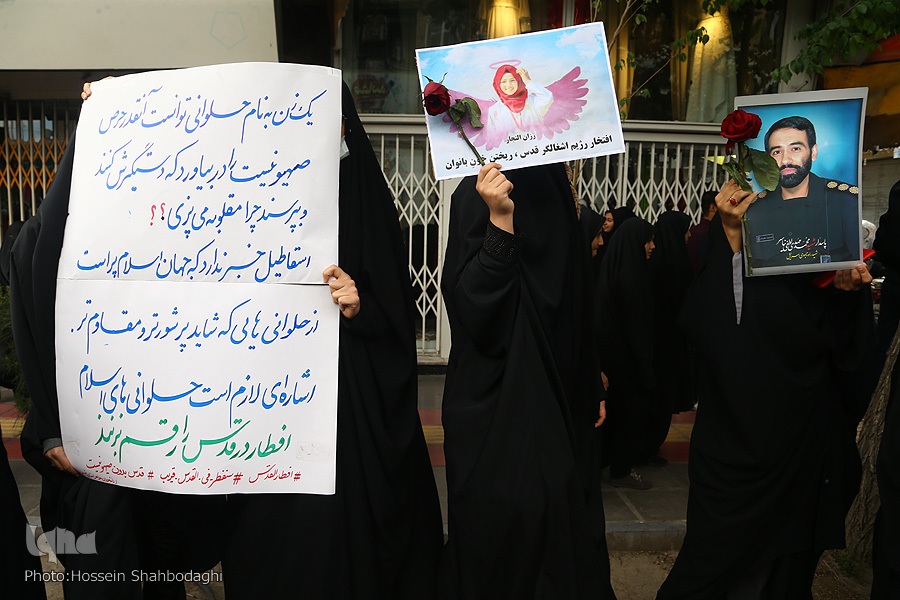 یک زن به نام حلوانی توانست آنقدر حرص
صهیونیست را در بیاورد که دستگیرش کنند
و بپرسند چرا مقلوبه می پزی؟؟
اسقاطیل خبر ندارد که جهان اسلام پر است
از حلوانی هایی که شاید پرشورتر و مقاوم تر.
اشاره ای لازم است حلوانی های اسلام
افطار در قدس را رقم بزنند
#افطار_القدس #سنفطر_فی_القدس_قریب #قدس_بدون_صهیونیست
رزان النجار
افتخار رژیم اشغالگر قدس، ریختن خون بانوان
پاسدار شهید
iqna
Photo:Hossein Shahbodaghi